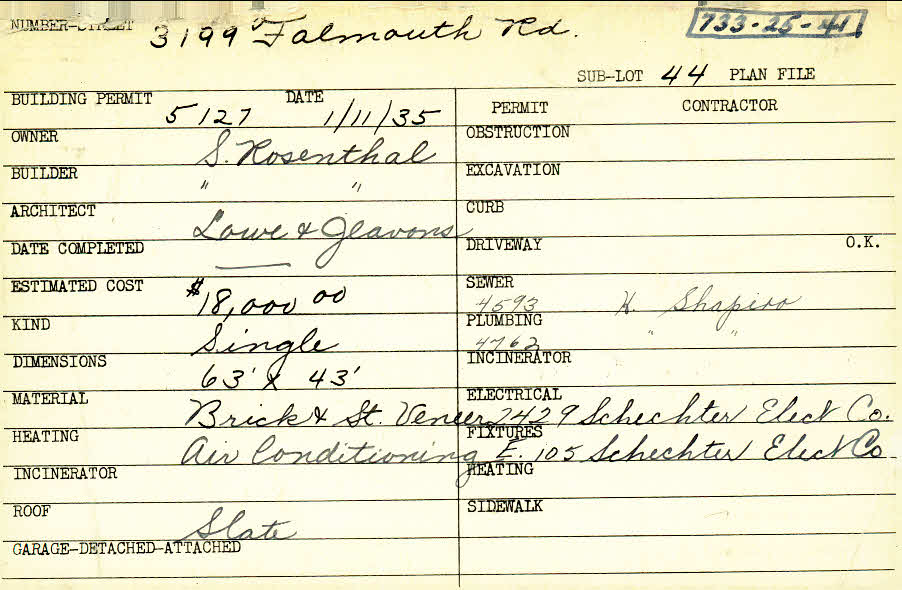 NUMBER-STREET 3199 Falmouth Rd. 733-25-41
SUB-LOT 44 PLAN FILE
BUILDING PERMIT 5127 DATE 1/11/35
OWNER S. Rosenthal
BUILDER " "
ARCHITECT Lowe & Jeavons
DATE COMPLETED —
ESTIMATED COST $18,000 00
KIND Single
DIMENSIONS 63' x 43'
MATERIAL Brick & St. Veneer
HEATING Air Conditioning
INCINERATOR
ROOF Slate
GARAGE-DETACHED-ATTACHED
PERMIT CONTRACTOR
OBSTRUCTION
EXCAVATION
CURB
DRIVEWAY O.K.
SEWER 4593 H. Shapiro
PLUMBING 4762 " "
INCINERATOR
ELECTRICAL 7429 Schechter Elect Co.
FIXTURES E. 105 Schechter Elect Co
HEATING
SIDEWALK